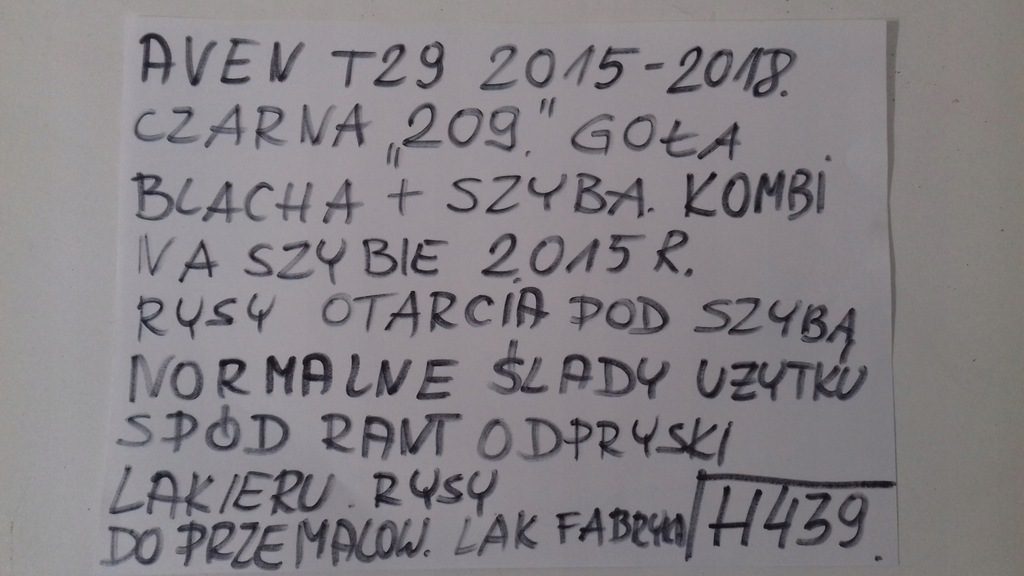 AVEN T29 2015-2018.
CZARNA „209." GOŁA
BLACHA + SZYBA. KOMBI
NA SZYBIE 2015 R.
RYSY OTARCIA POD SZYBĄ
NORMALNE ŚLADY UZYTKU
SPÓD RANT ODPRYSKI
LAKIERU. RYSY
DO PRZEMALOW. LAK FABRYKA H439.